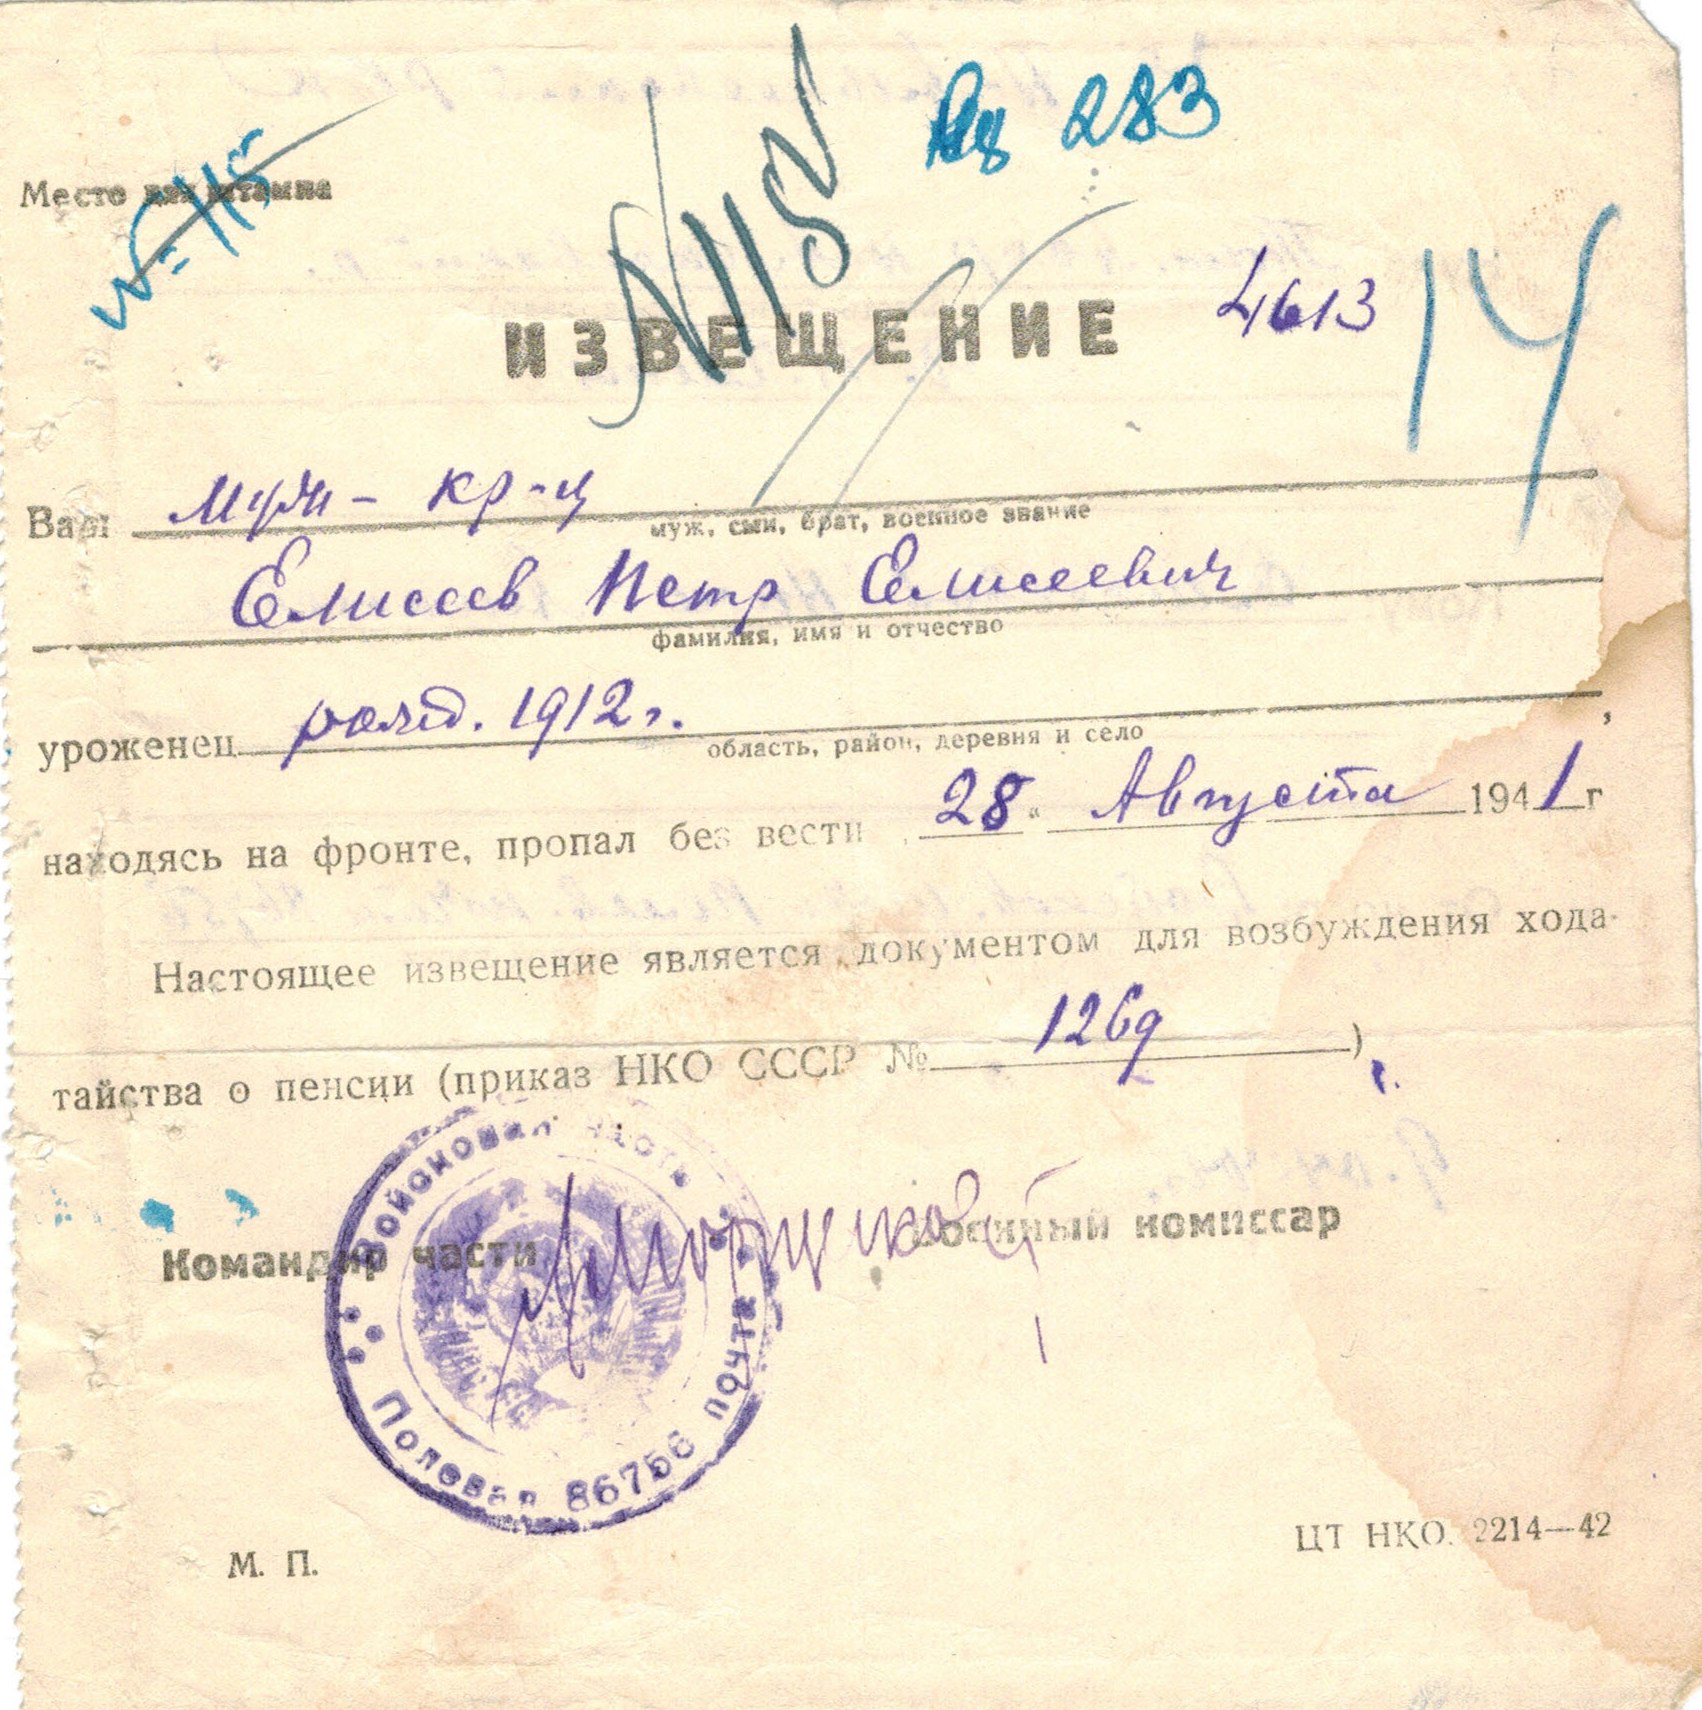 283
№ 115
Место для штампа
№ 115
ИЗВЕЩЕНИЕ
4613
14
Ваш муж - кр-ц
муж, сын, брат, военное звание
Елисеев Петр Елисеевич
фамилия, имя и отчество
уроженец рожд. 1912 г.
область, район, деревня и село
находясь на фронте, пропал без вести „28“ Августа 1941 г
Настоящее извещение является документом для возбуждения хода-
тайства о пенсии (приказ НКО СССР № 126д)
Командир части Военный комиссар
Войсковая часть
Полевая почта 86756
М. П.
ЦТ НКО. 2214—42